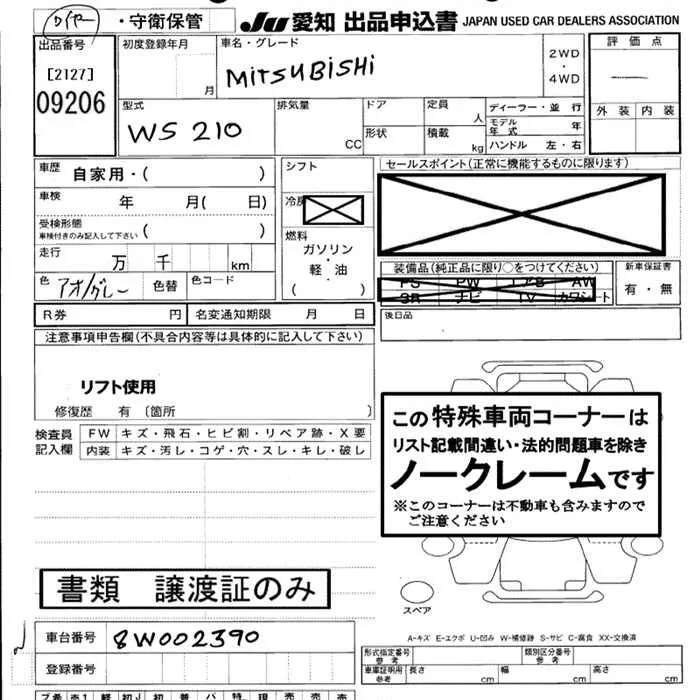 ・守衛保管
JU 愛知 出品申込書 JAPAN USED CAR DEALERS ASSOCIATION
出品番号
[2127]
09206
初度登録年月
月
車名・グレード
MITSUBISHI
2WD
・
4WD
評価点
外装 内装
型式
WS 210
排気量
CC
ドア
形状
定員
人
積載
kg
ディーラー・並 行
モデル年式 年
ハンドル 左・右
車歴
自家用・( )
車検
年 月( 日)
受検形態
車検付きのみ記入して下さい ( )
走行
万 千 km
色
アオ/グレー
色替
色コード
シフト
冷房
燃料
ガソリン
・
軽・油
( )
セールスポイント(正常に機能するものに限ります)
装備品(純正品に限り○をつけてください)
PS PW エアB AW
SR ナビ TV カワシート
新車保証書
有・無
R券 円 名変通知期限 月 日
後日品
注意事項申告欄(不具合内容等は具体的に記入して下さい)
リフト使用
修復歴 有 〔箇所 〕
検査員
記入欄
FW キズ・飛石・ヒビ割・リペア跡・X要
内装 キズ・汚レ・コゲ・穴・スレ・キレ・破レ
この特殊車両コーナーは
リスト記載間違い・法的問題車を除き
ノークレームです
※このコーナーは不動車も含みますので
ご注意ください
書類 譲渡証のみ
スペア
車台番号 8W002390
登録番号
A-キズ E-エクボ U-凹み W-補修跡 S-サビ C-腐食 XX-交換済
形式指定番号
参考
類別区分番号
参考
車庫証明用
参考
長さ cm 幅 cm 高さ cm